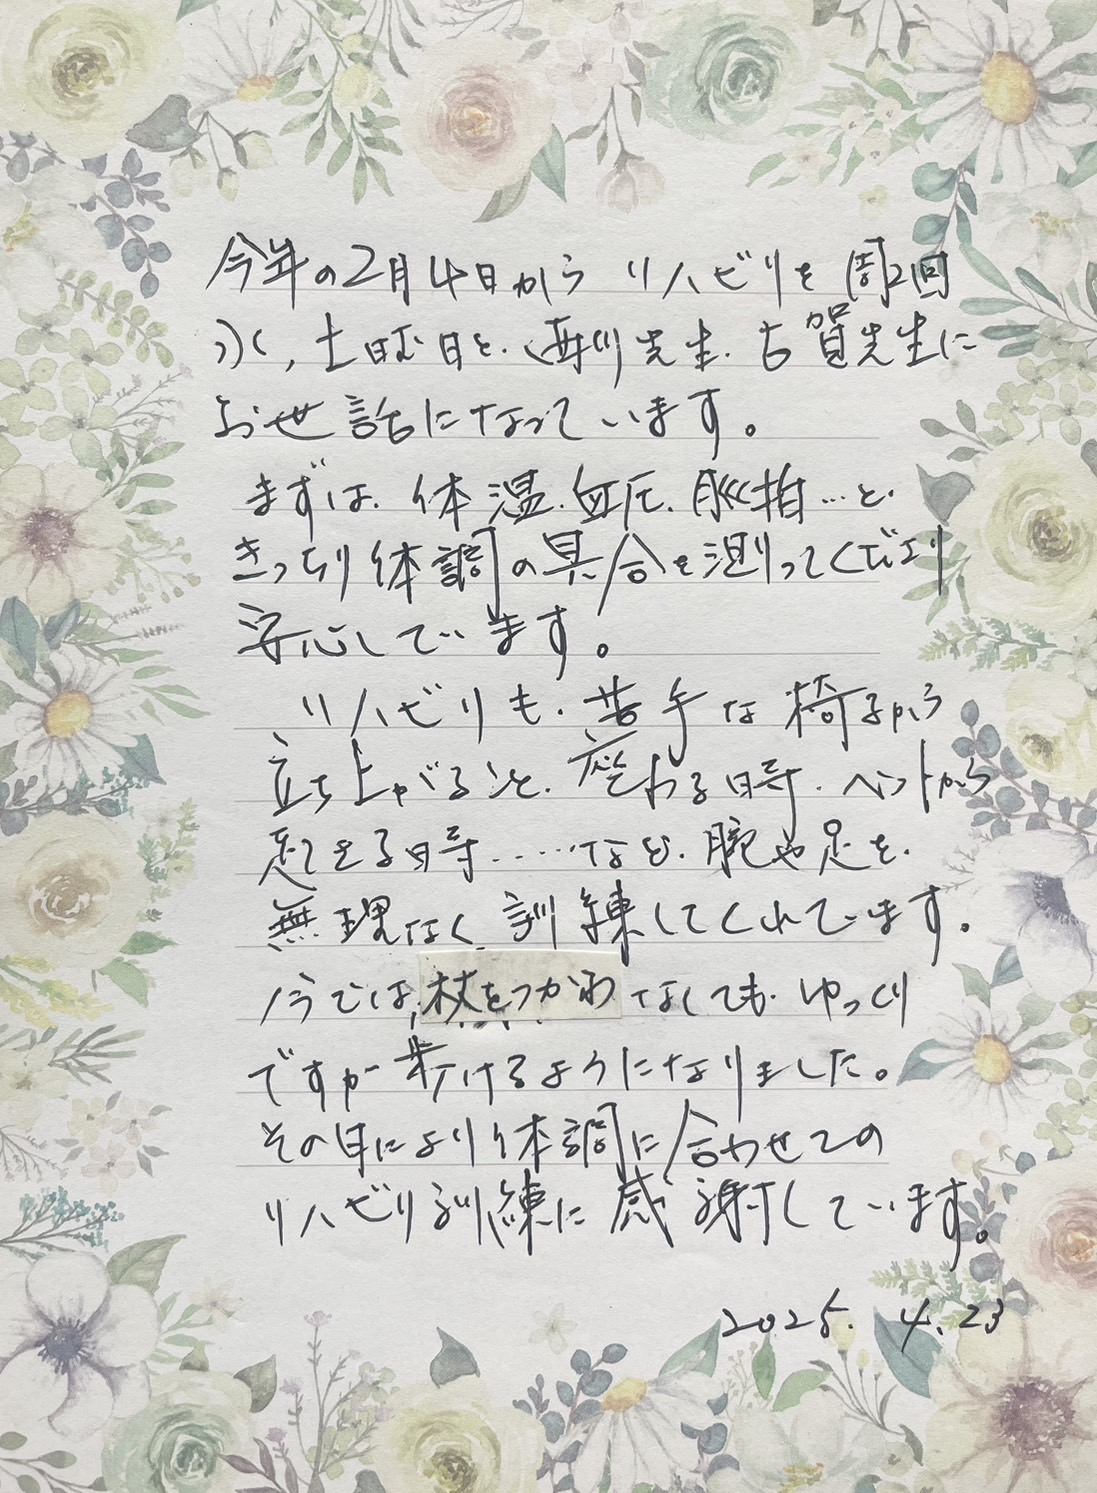 今年の2月4日から リハビリを 週2回
づく、土曜日を、西川先生、古賀先生に
お世話になっています。
まずは、体温、血圧、脈拍…と、
きっちり体調の具合を測ってくださり
安心しています。
リハビリも、苦手な椅子から
立ち上がること、座わる時、ベットから
起きる時……など、腕や足を、
無理なく、訓練してくれています。
今では、杖をつかわなくても、ゆっくり
ですが歩けるようになりました。
その日により体調に合わせての
リハビリ訓練に感謝しています。
2025. 4.23